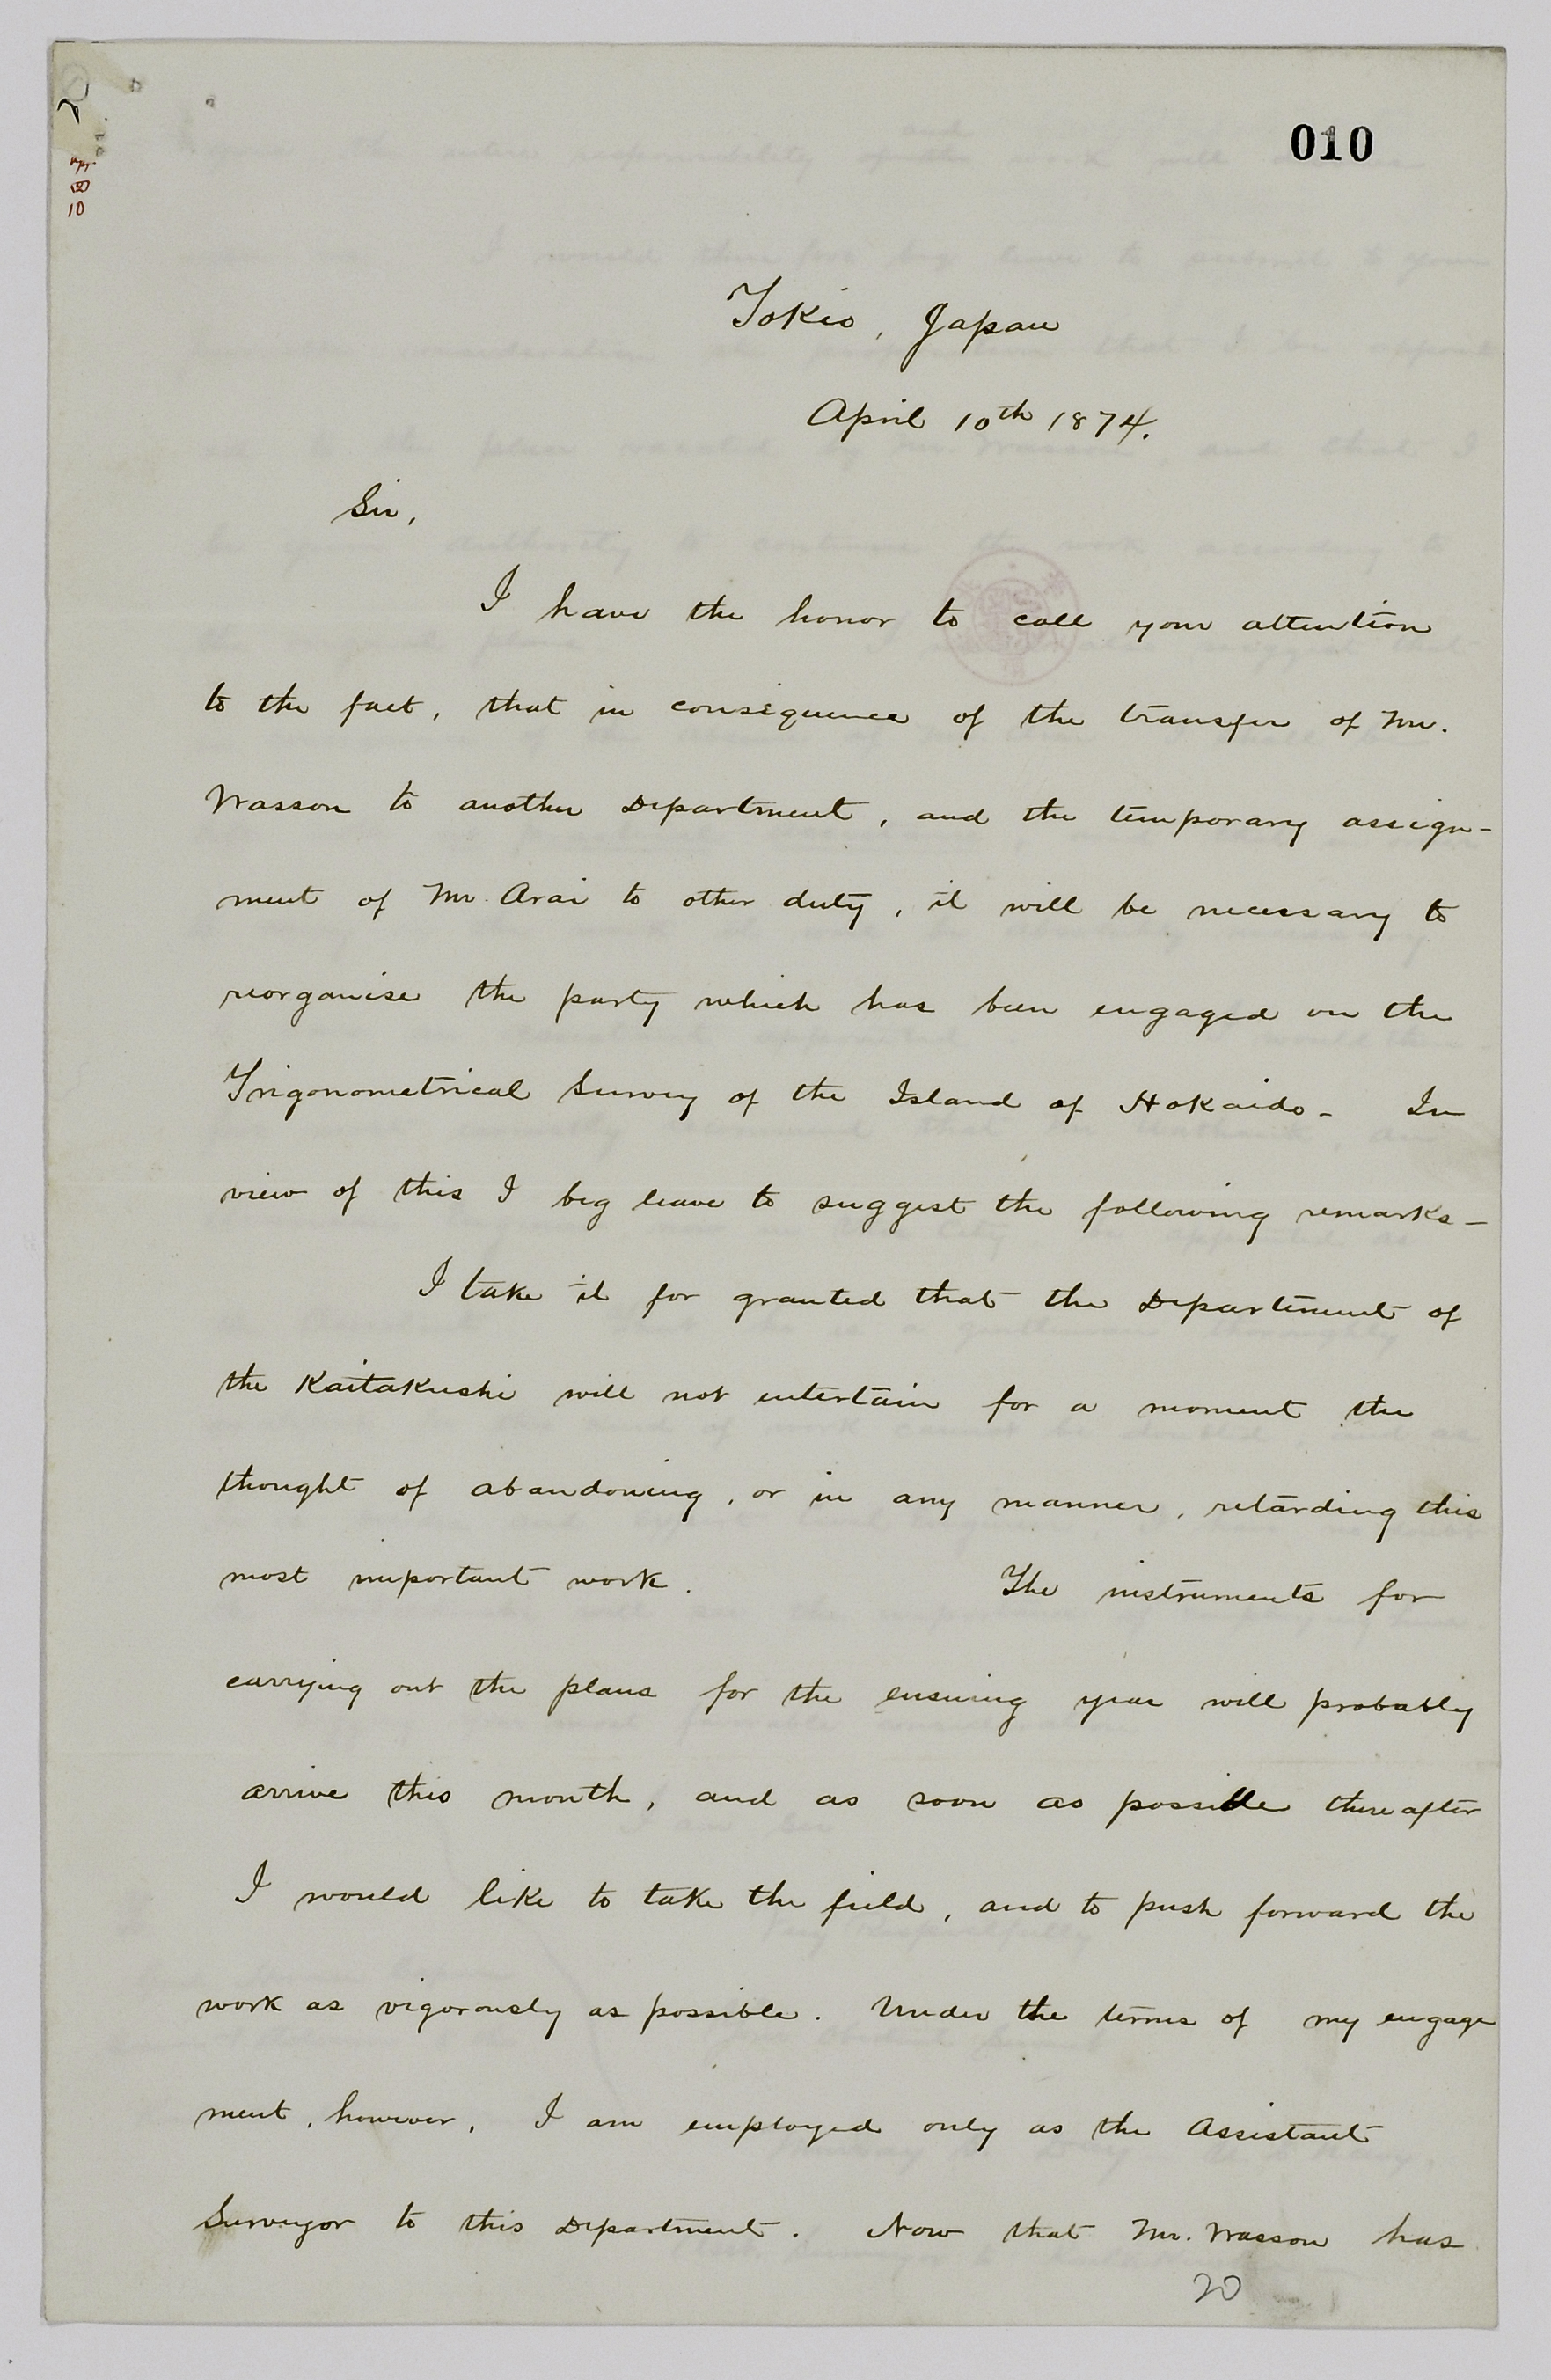 010
Tokio, Japan
April 10th 1874.
Sir,
I have the honor to call your attention
to the fact, that in consequence of the transfer of Mr.
Wasson to another Department, and the temporary assign-
ment of Mr. Arai to other duty, it will be necessary to
reorganise the party which has been engaged on the
Trigonometrical Survey of the Island of Hokaido- In
view of this I beg leave to suggest the following remarks-
I take it for granted that the Department of
the Kaitakushi will not entertain for a moment the
thought of abandoning, or in any manner, retarding this
most important work. The instruments for
carrying out the plans for the ensuing year will probably
arrive this month, and as soon as possible thereafter
I would like to take the field, and to push forward the
work as vigorously as possible. Under the terms of my engage
ment, however, I am employed only as the Assistant
Surveyor to this Department. Now that Mr. Wasson has
20